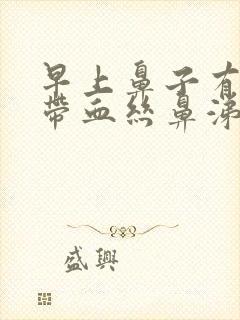 早上鼻子有
帶血絲鼻涕
盛興